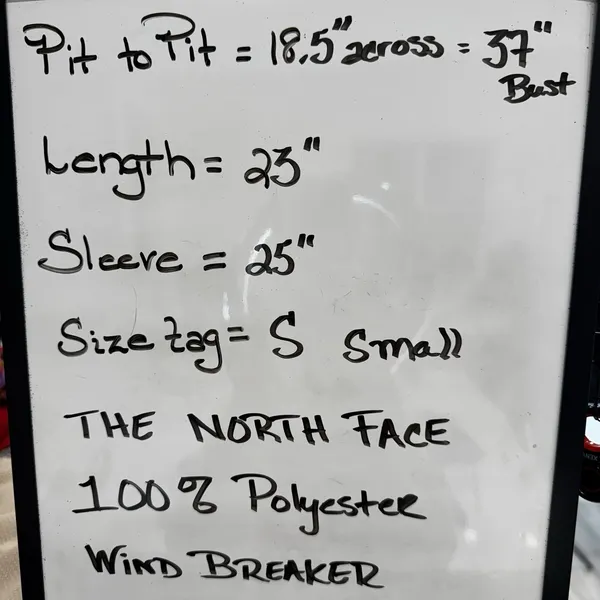 Pit to Pit = 18.5" across = 37"
Bust
Length = 23"
Sleeve = 25"
Size tag = S Small
THE NORTH FACE
100% Polyester
WIND BREAKER